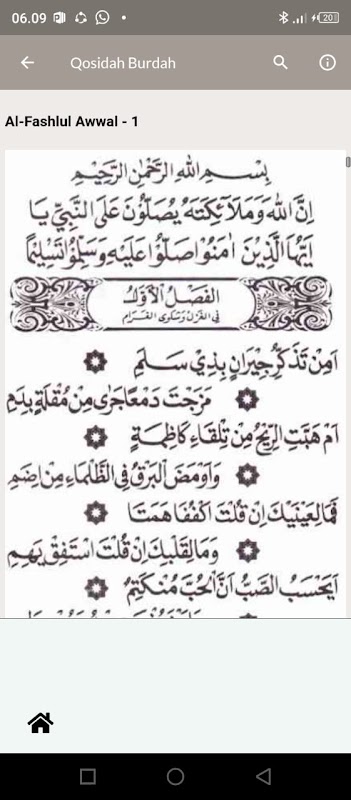 06.09
20
Qosidah Burdah
Al-Fashlul Awwal - 1
بِسْمِ اللهِ الرَّحْمٰنِ الرَّحِيْمِ
اِنَّ اللهَ وَمَلَآئِكَتَهُ يُصَلُّوْنَ عَلَى النَّبِيِّ يَا
اَيُّهَا الَّذِيْنَ اٰمَنُوْا صَلُّوْا عَلَيْهِ وَسَلِّمُوْا تَسْلِيْمًا
الفَصْلُ الْاَوَّلُ
في الغزل وشكوى الغرام
اَمِنْ تَذَكُّرِ جِيْرَانٍ بِذِيْ سَلَمِ
مَزَجْتَ دَمْعًا جَرٰى مِنْ مُقْلَةٍ بِدَمِ
اَمْ هَبَّتِ الرِّيْحُ مِنْ تِلْقَاءِ كَاظِمَةٍ
وَاَوْمَضَ الْبَرْقُ فِى الظَّلْمَاءِ مِنْ اِضَمِ
فَمَا لِعَيْنَيْكَ اِنْ قُلْتَ اكْفُفَا هَمَتَا
وَمَا لِقَلْبِكَ اِنْ قُلْتَ اسْتَفِقْ يَهِمِ
اَيَحْسَبُ الصَّبُّ اَنَّ الْحُبَّ مُنْكَتِمٌ